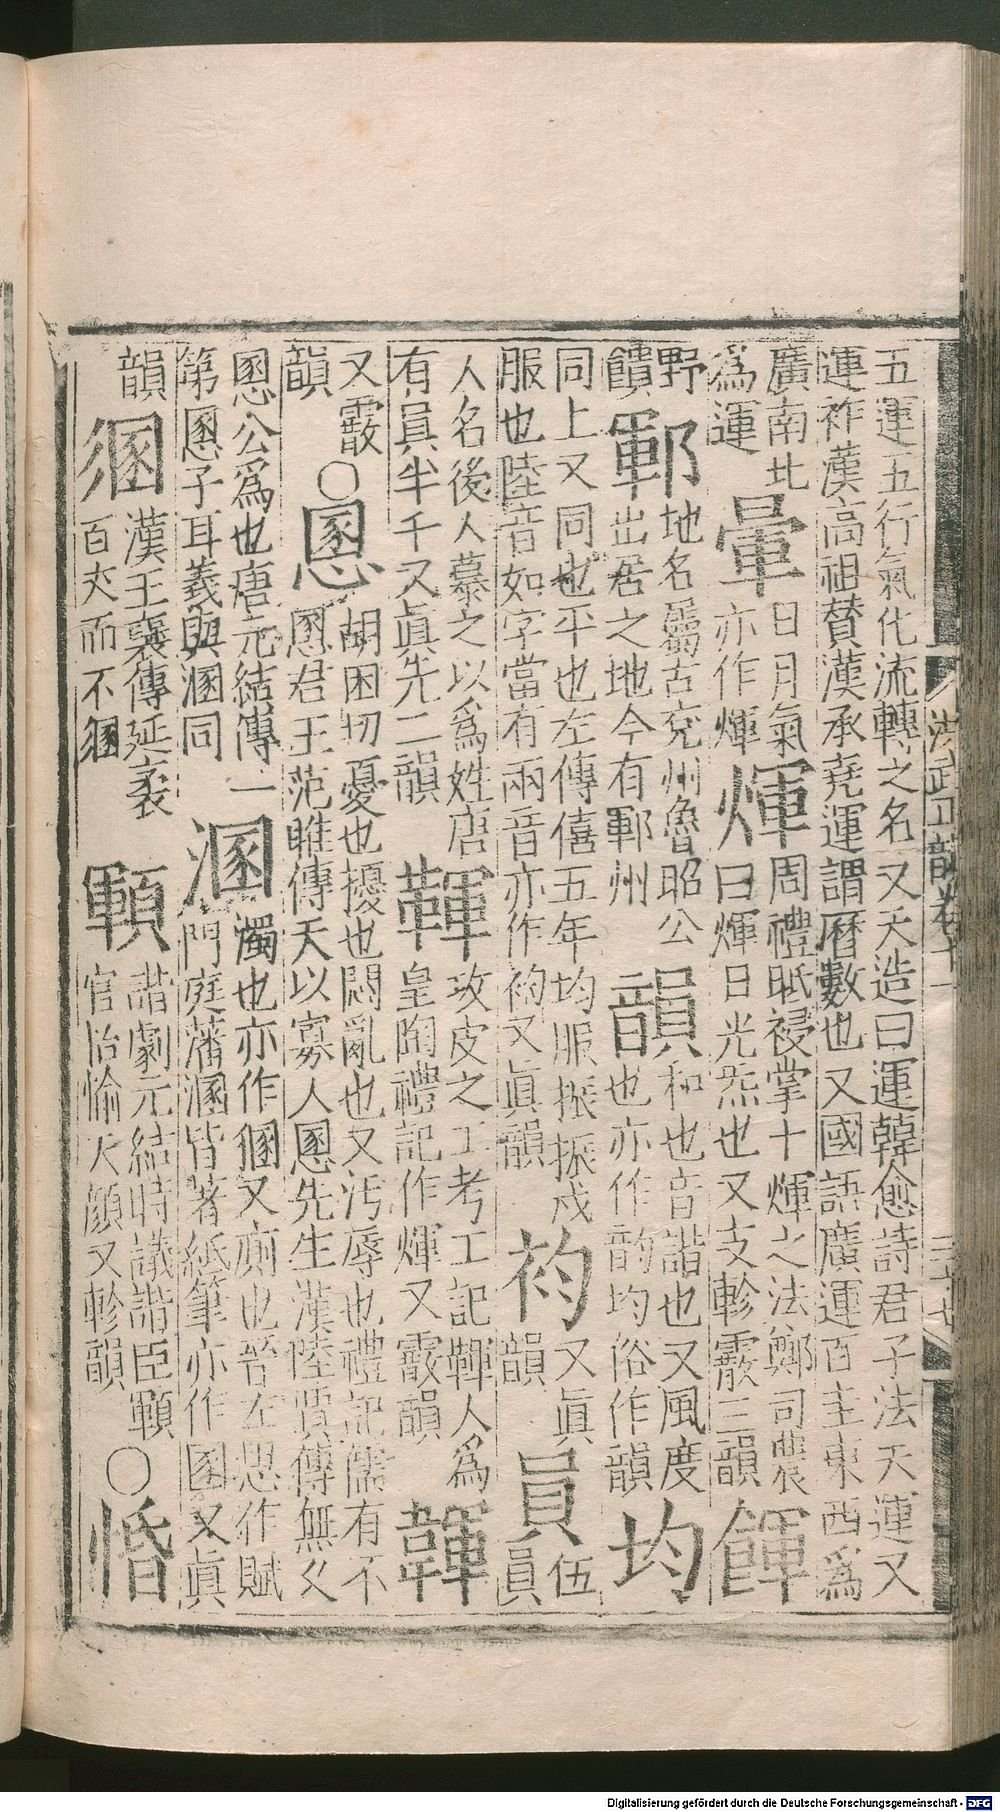 五運五行氣化流轉之名又天造曰運韓愈詩君子法天運又
運祚漢高祖贊漢承堯運謂曆數也又國語廣運百里東西爲
廣南北
爲運
暈
日月氣
亦作煇
煇
周禮眡祲掌十煇之法鄭司農
曰煇日光炁也又支軫霰三韻
餫
野
饋
鄆
地名屬古兖州魯昭公
出居之地今有鄆州
韻
和也音諧也又風度
也亦作韵均俗作韻
均
同上又同也平也左傳僖五年均服振振戎
服也陸音如字當有兩音亦作袀又眞韻
袀
又眞
韻
員
伍
員
人名後人慕之以爲姓唐
有員半千又眞先二韻
鞾
攻皮之工考工記鞾人爲
皇陶禮記作煇又霰韻
韗
又霰
韻
○慁
胡困切憂也擾也悶亂也又汚辱也禮記儒有不
慁君王范睢傳天以寡人慁先生漢陸賈傳無久
慁公爲也唐元結傳一
第慁子耳義與溷同
溷
濁也亦作圂又廁也晉左思作賦
門庭藩溷皆著紙筆亦作圂又眞
韻
漢王襃傳延袤
百丈而不
顐
諧劇元結時議諧臣顐
官怡愉天顔又軫韻
○惛
洪武正韻卷十一